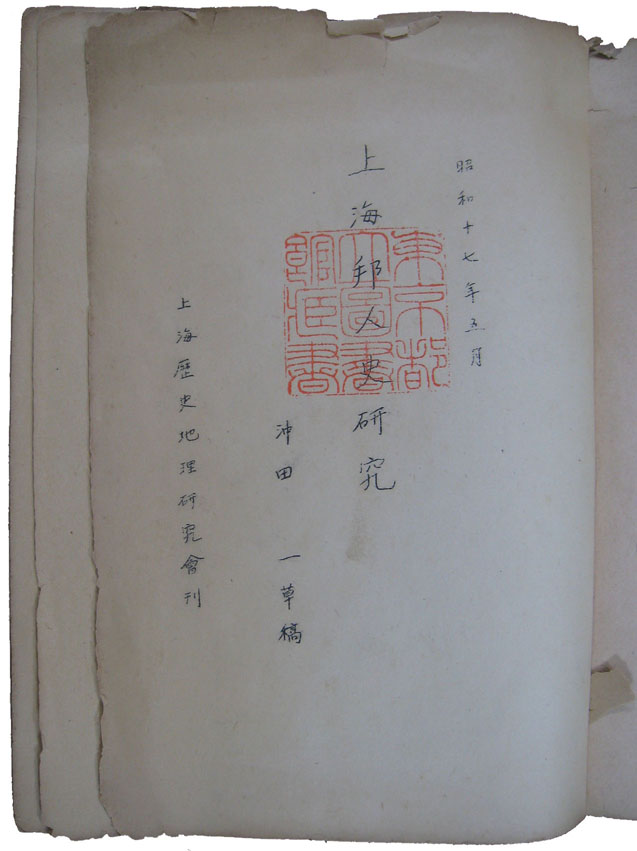 昭和十七年五月
上海邦人史研究
東京都
立図書
館蔵書
沖田 一草稿
上海歴史地理研究會刊